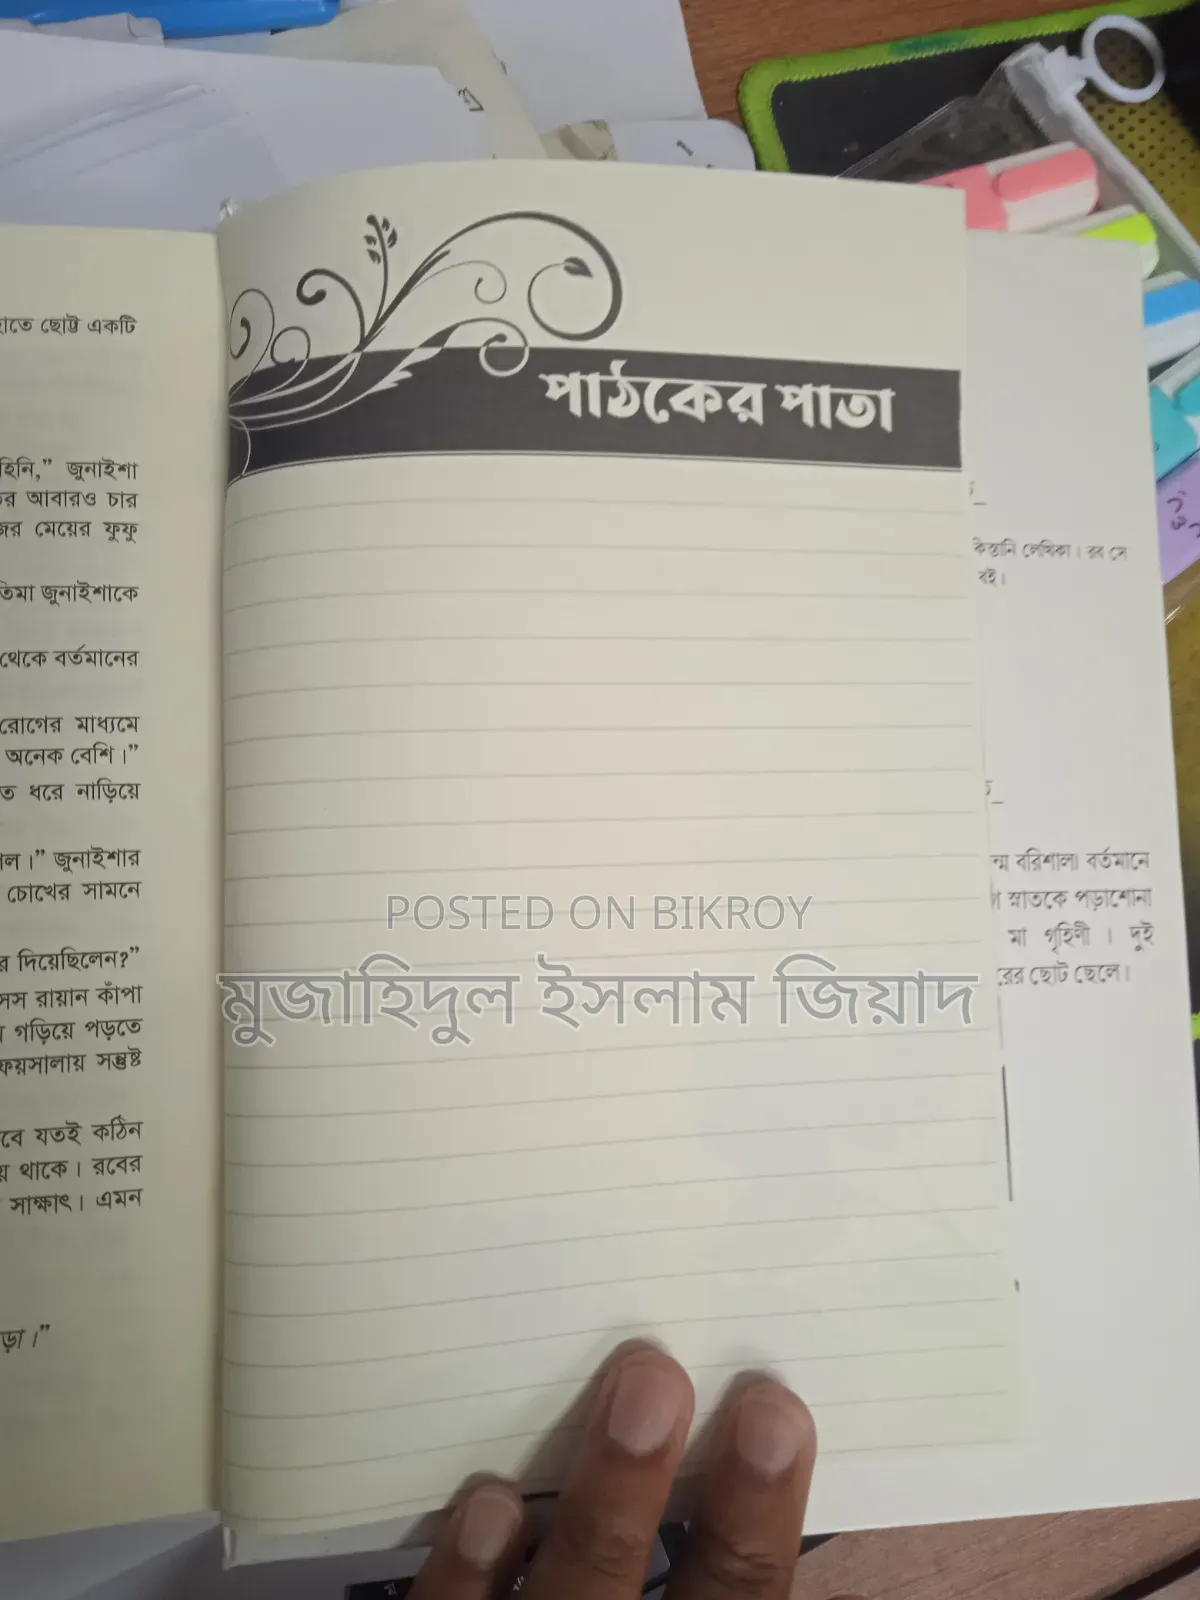 ছোট্ট একটি
জুনাইশা
আবারও চার
মেয়ের ফুফু
জুনাইশাকে
থেকে বর্তমানের
রোগের মাধ্যমে
অনেক বেশি।”
ধরে নাড়িয়ে
জুনাইশার
চোখের সামনে
দিয়েছিলেন?”
রায়ান কাঁপা
গড়িয়ে পড়তে
সন্তুষ্ট
যতই কঠিন
থাকে। রবের
সাক্ষাৎ। এমন
পাঠকের পাতা
লেখিকা। রব সে
বই।
বরিশাল। বর্তমানে
স্নাতকে পড়াশোনা
মা গৃহিণী । দুই
ছোট ছেলে।
POSTED ON BIKROY
মুজাহিদুল ইসলাম জিয়াদ